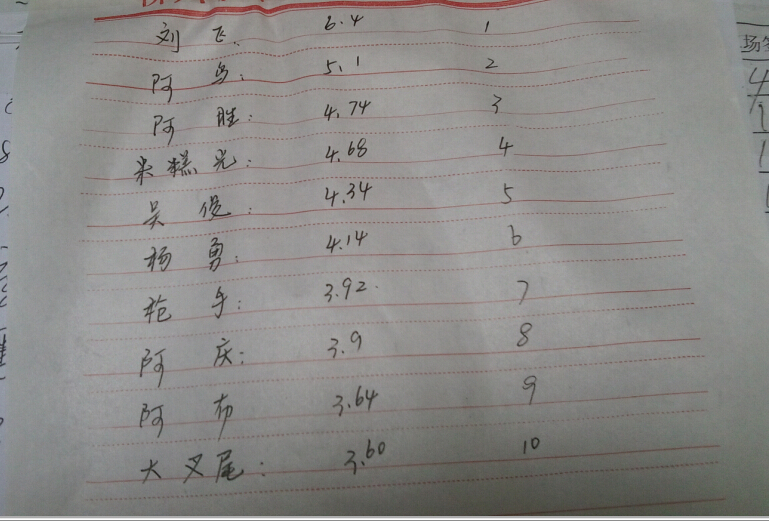 刘飞: 6.4 1
阿鸟: 5.1 2
阿胜: 4.74 3
米糕光: 4.68 4
吴俊: 4.34 5
杨勇: 4.14 6
枪手: 3.92 7
阿庆: 3.9 8
阿布 3.64 9
大叉尾: 3.60 10
场